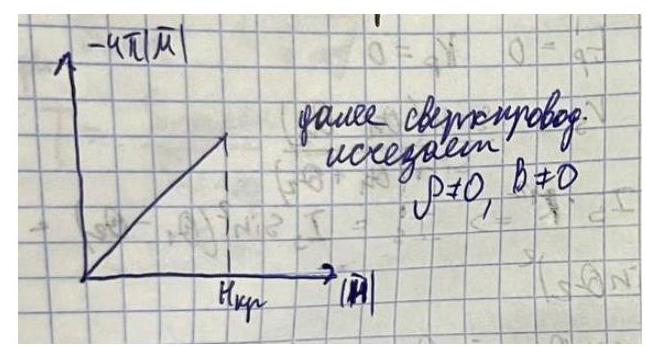 -4π|M̄|
далее сверхпровод.
исчезает
ρ≠0, B≠0
Hкр
|H̄|